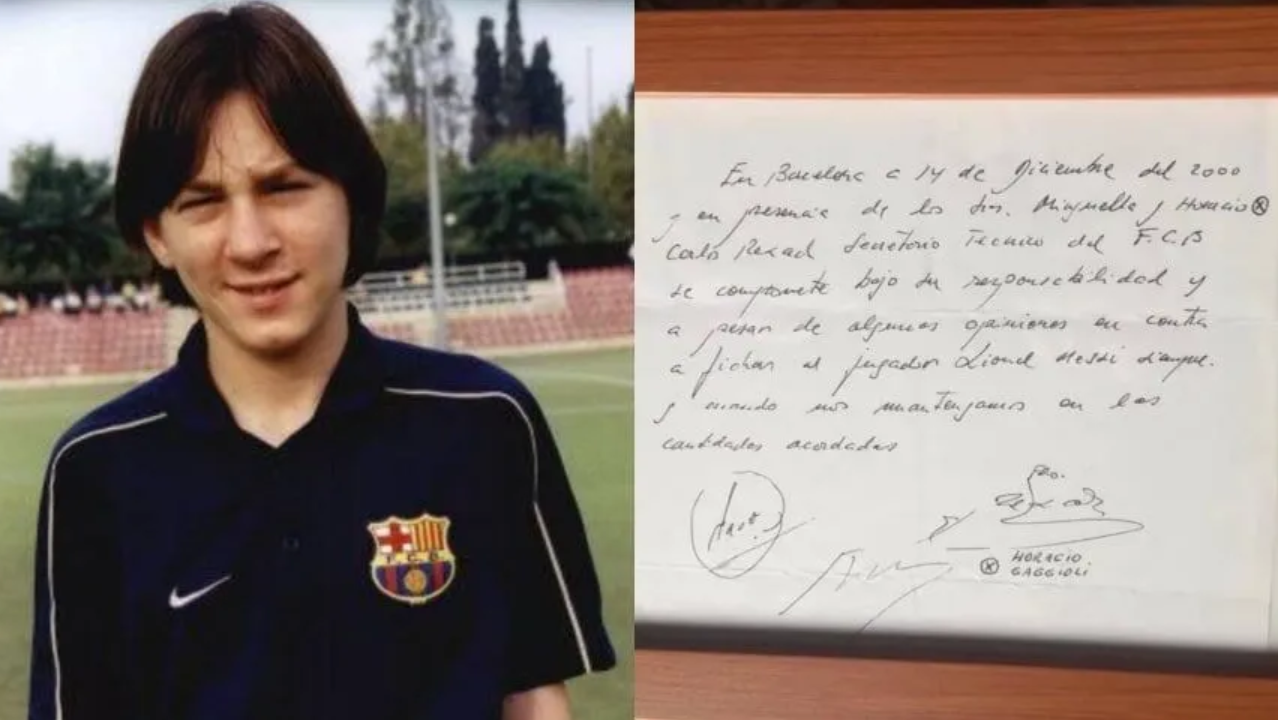 F. C. B
En Barcelona a 14 de Diciembre del 2000
y en presencia de los Srs. Minguella y Horacio ⊗
Carlos Rexach Secretario Tecnico del F.C.B
se compromete bajo su responsabilidad y
a pesar de algunas opiniones en contra
a fichar al jugador Lionel Messi siempre
y cuando nos mantengamos en las
cantidades acordadas
⊗ HORACIO
GAGGIOLI